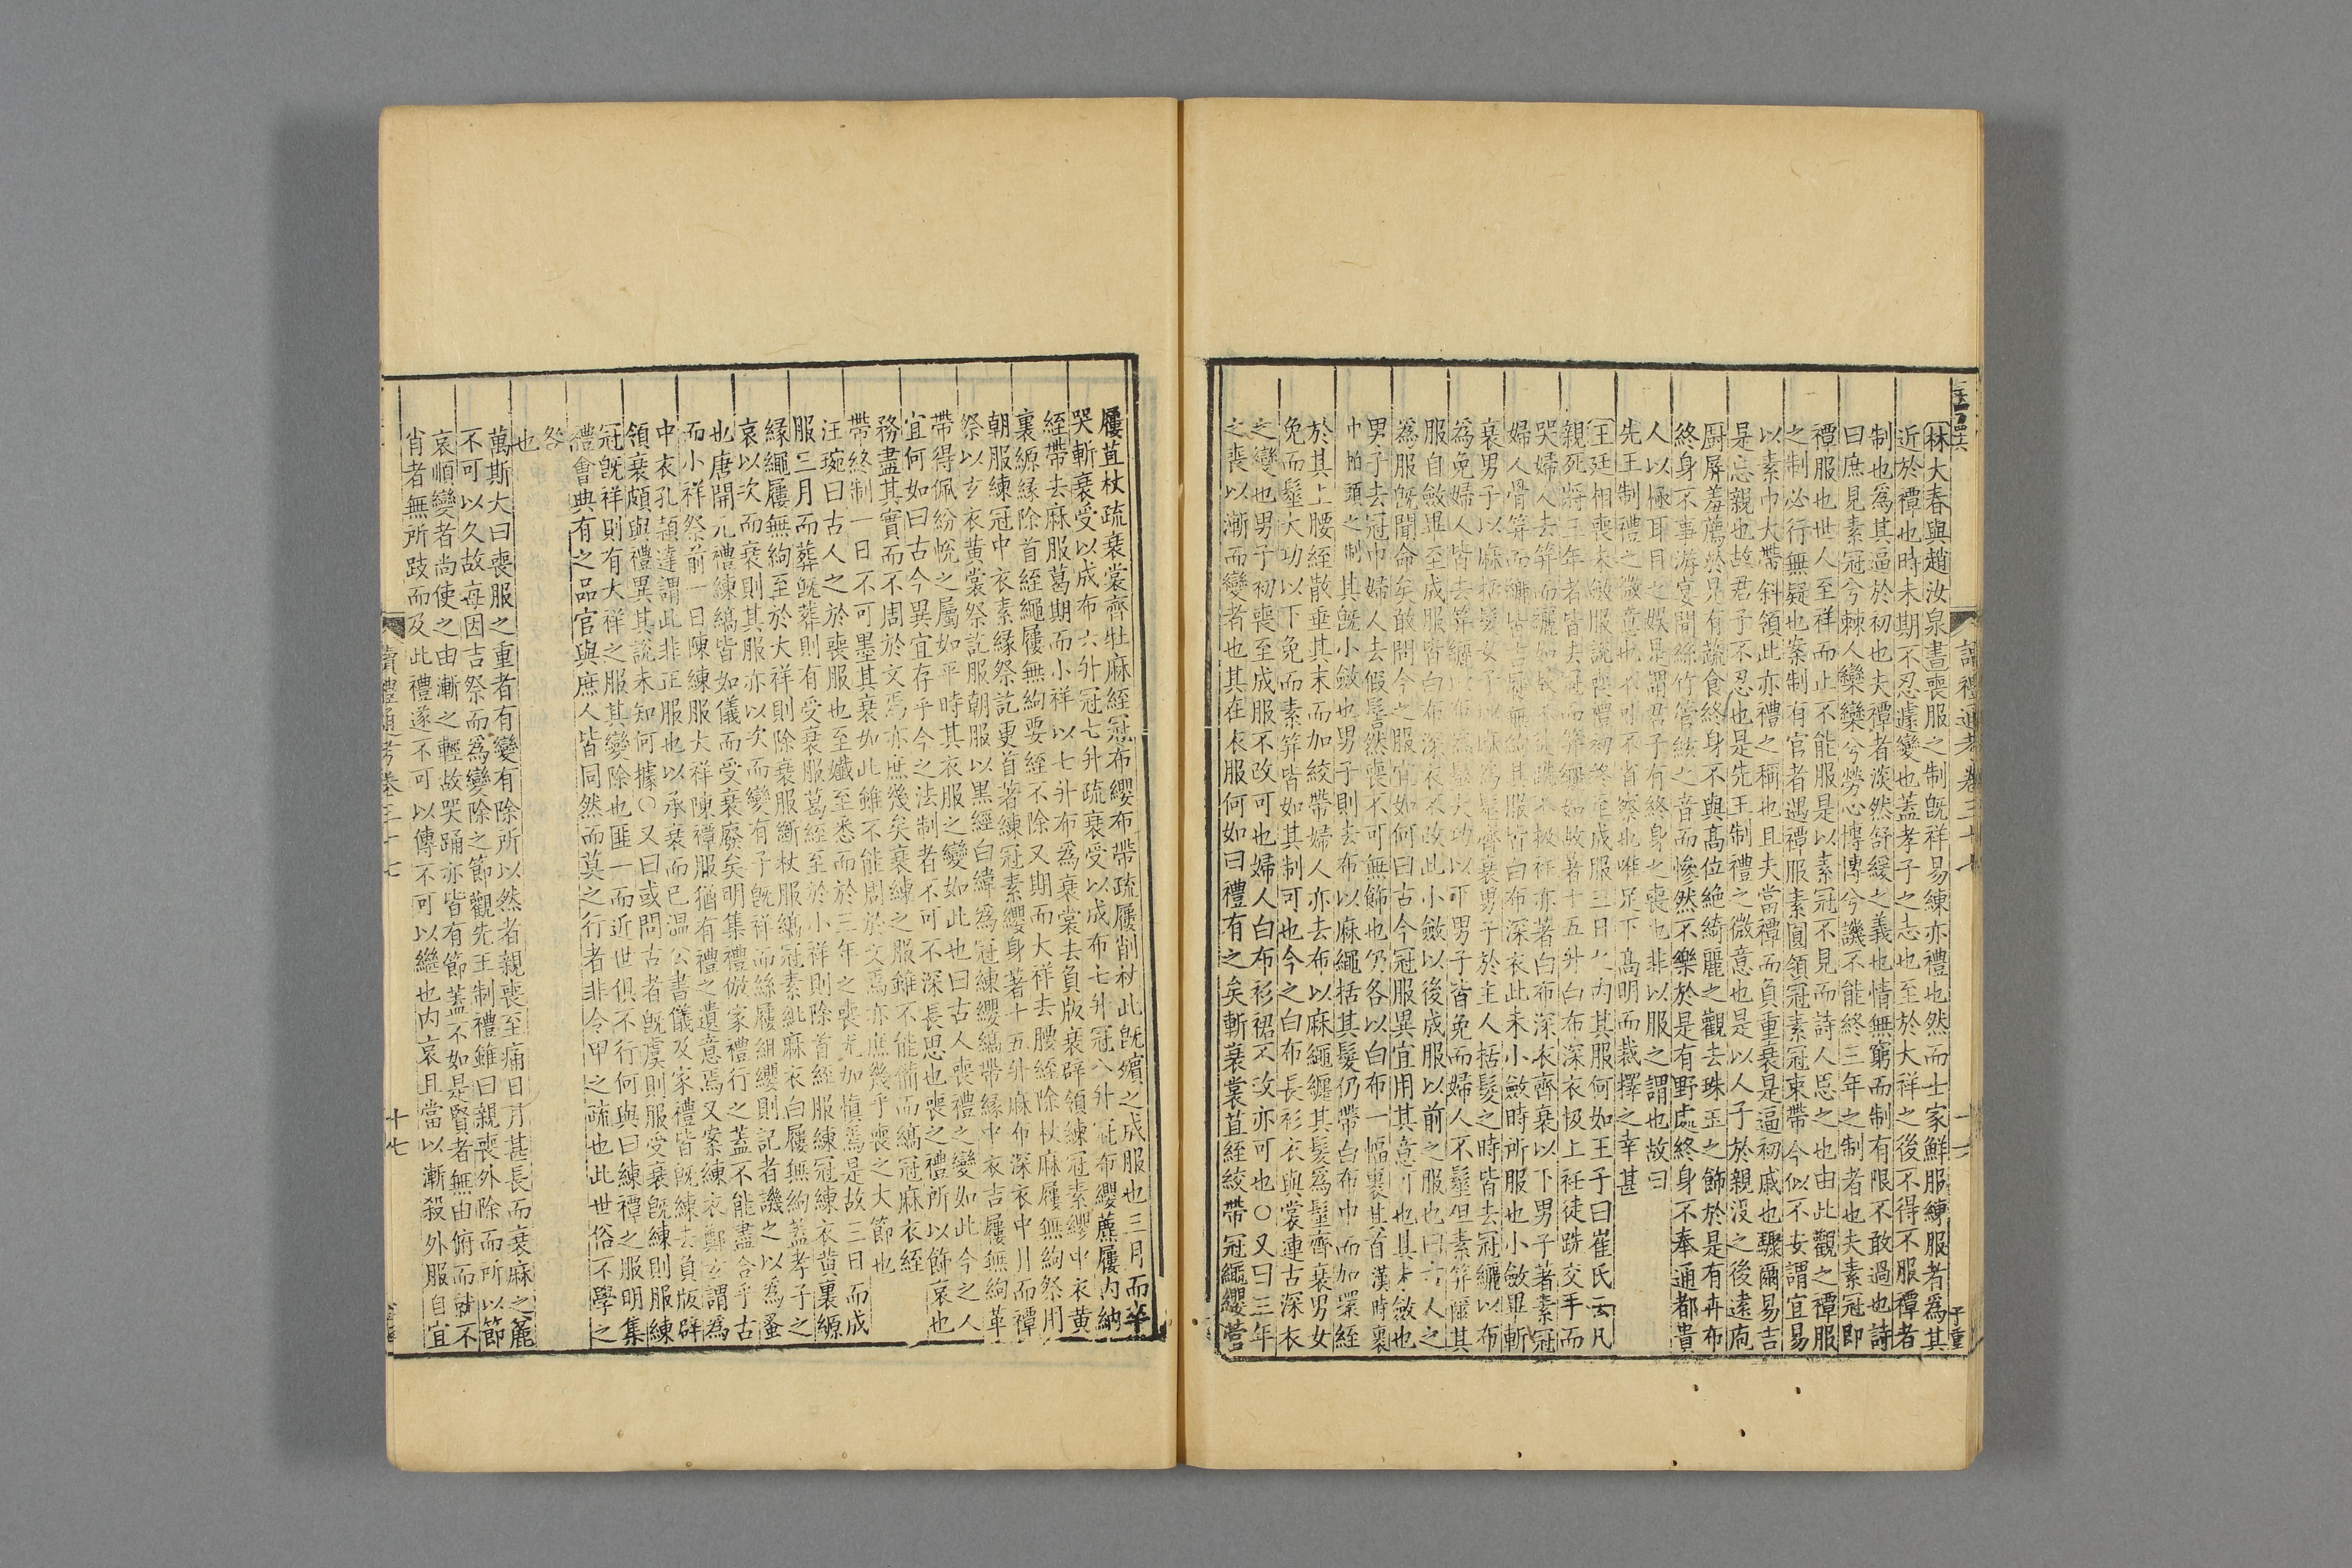 讀禮通考卷三十七
林大春與趙汝泉書喪服之制旣祥易練亦禮也然而士家鮮服練服者爲其
近於禫也時未期不忍遽變也蓋孝子之志也至於大祥之後不得不服禫者
制也爲其逼於初也夫禫者淡然舒緩之義也情無窮而制有限不敢過也詩
曰庶見素冠兮棘人欒欒兮勞心慱慱兮譏不能終三年之制者也夫素冠即
禫服也世人至祥而止不能服是以素冠不見而詩人思之也由此觀之禫服
之制必行無疑也案制有官者遇禫服素圓領冠素冠束帶今似不安謂宜易
以素巾大帶斜領此亦禮之稱也且夫當禫而負重衰是逼初戚也驟爾易吉
是忘親也故君子不忍也是先王制禮之微意也是以人子於親沒之後遠庖
廚屏羞薦於是有蔬食終身不與高位絶綺麗之觀去珠玉之飾於是有卉布
終身不事游宴間絲竹管絃之音而慘然不樂於是有野處終身不奉通都貴
人以極耳目之娛是謂君子有終身之喪也非以服之謂也故曰
先王制禮之微意也不可不省察也唯足下高明而裁擇之幸甚
王廷相喪未斂服說喪禮初終至成服三日之內其服何如王子曰崔氏云凡
親死將三年者皆去冠而筓纚如故著十五升白布深衣扱上衽徒跣交手而
哭婦人去筓而纚如故不徒跣不扱衽亦著白布深衣齊衰以下男子著素冠
婦人骨筓而纚皆吉屨無絇其服皆白布深衣此未小斂時所服也小斂畢斬
衰男子以麻括髮女子以麻爲髽齊衰男子於主人括髮之時皆去冠纚以布
爲免婦人皆去筓纚以布爲髽大功以下男子皆免而婦人不髽但素筓纚其
服自斂畢至成服皆白布深衣不改此小斂以後成服以前之服也曰古人之
爲服旣聞命矣敢問今之服宜如何曰古今冠服異宜用其意可也其未斂也
男子去冠巾婦人去假髻然喪不可無飾也仍各以白布一幅裹其首漢時裹
巾帕頭之制其旣小斂也男子則去布以麻繩括其髮仍帶白布巾而加環絰
於其上腰絰散垂其末而加絞帶婦人亦去布以麻繩纒其髮爲髽齊衰男女
免而髽大功以下免而素筓皆如其制可也今之白布長衫衣與裳連古深衣
之變也男子初喪至成服不改可也婦人白布衫裙不改亦可也○又曰三年
之喪以漸而變者也其在衣服何如曰禮有之矣斬衰裳苴絰絞帶冠繩纓菅
屨苴杖疏衰裳齊牡麻絰冠布纓布帶疏屨削杖此旣殯之成服也三月而卒
哭斬衰受以成布六升冠七升疏衰受以成布七升冠八升冠布纓蔗屨內納
絰帶去麻服葛期而小祥以七升布爲衰裳去負版衰辟領練冠素纓中衣黄
裏縓緣除首絰繩屨無絇要絰不除又期而大祥去腰絰除杖麻屨無絇祭用
朝服練冠中衣素緣祭訖更首著練冠素纓身著十五升麻布深衣中月而禫
祭以玄衣黄裳祭訖服朝服以黑經白緯爲冠練纓縞帶緣中衣吉屨無絇革
帶得佩紛帨之屬如平時其衣服之變如此也曰古人喪禮之變如此今之人
宜何如曰古今異宜存乎今之法制者不可不深長思也喪之禮所以飾哀也
務盡其實而不周於文焉亦庶幾矣衰練之服雖不能備而縞冠麻衣絰
帶終制一日不可墨其衰如此雖不能周於文焉亦庶幾乎喪之大節也
汪琬曰古人之於喪服也至纖至悉而於三年之喪尤加愼焉是故三日而成
服三月而葬旣葬則有受衰服葛絰至於小祥則除首絰服練冠練衣黄裏縓
緣繩屨無絇至於大祥則除衰服斷杖服縞冠素紕麻衣白屨無絇蓋孝子之
哀以次而衰則其服亦以次而變有子旣祥而絲屨組纓則記者譏之以爲蚤
也唐開元禮練縞皆如儀而受衰廢矣明集禮倣家禮行之蓋不能盡合乎古
而小祥祭前一日陳練服大祥陳禫服猶有禮之遺意焉又案練衣鄭玄謂爲
中衣孔頴達謂此非正服也以承衰而已温公書儀及家禮皆旣練去負版辟
領衰頗與禮異其説未知何據○又曰或問古者旣虞則服受衰旣練則服練
冠旣祥則有大祥之服其變除也匪一而近世俱不行何與曰練禫之服明集
禮會典有之品官與庶人皆同然而莫之行者非令甲之疏也此世俗不學之
咎
也
萬斯大曰喪服之重者有變有除所以然者親喪至痛日月甚長而衰麻之麤
不可以久故每因吉祭而爲變除之節觀先王制禮雖曰親喪外除而所以節
哀順變者尚使之由漸之輕故哭踊亦皆有節蓋不如是賢者無由俯而就不
肖者無所跂而及此禮遂不可以傳不可以繼也内哀且當以漸殺外服自宜
讀禮通考卷三十七
十七